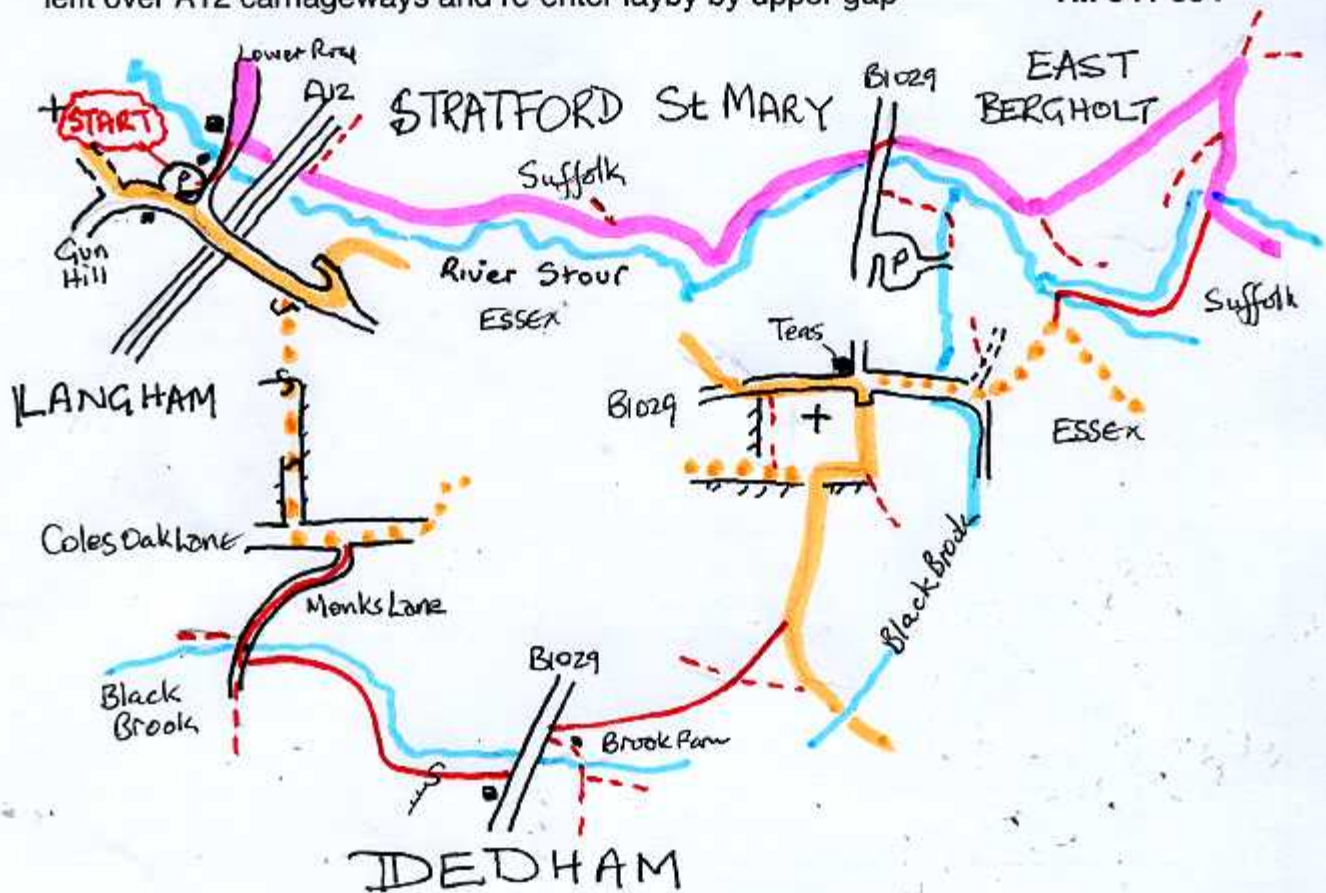 left over A12 carriageways and re-enter layby by upper gap
Lower Road
A12
START
STRATFORD St MARY
B1029
EAST
BERGHOLT
P
Suffolk
Gun
Hill
River Stour
ESSEX
P
Suffolk
Teas
LANGHAM
B1029
ESSEX
Coles Oak Lane
Monks Lane
Black Brook
Black
Brook
B1029
Brook Farm
DEDHAM